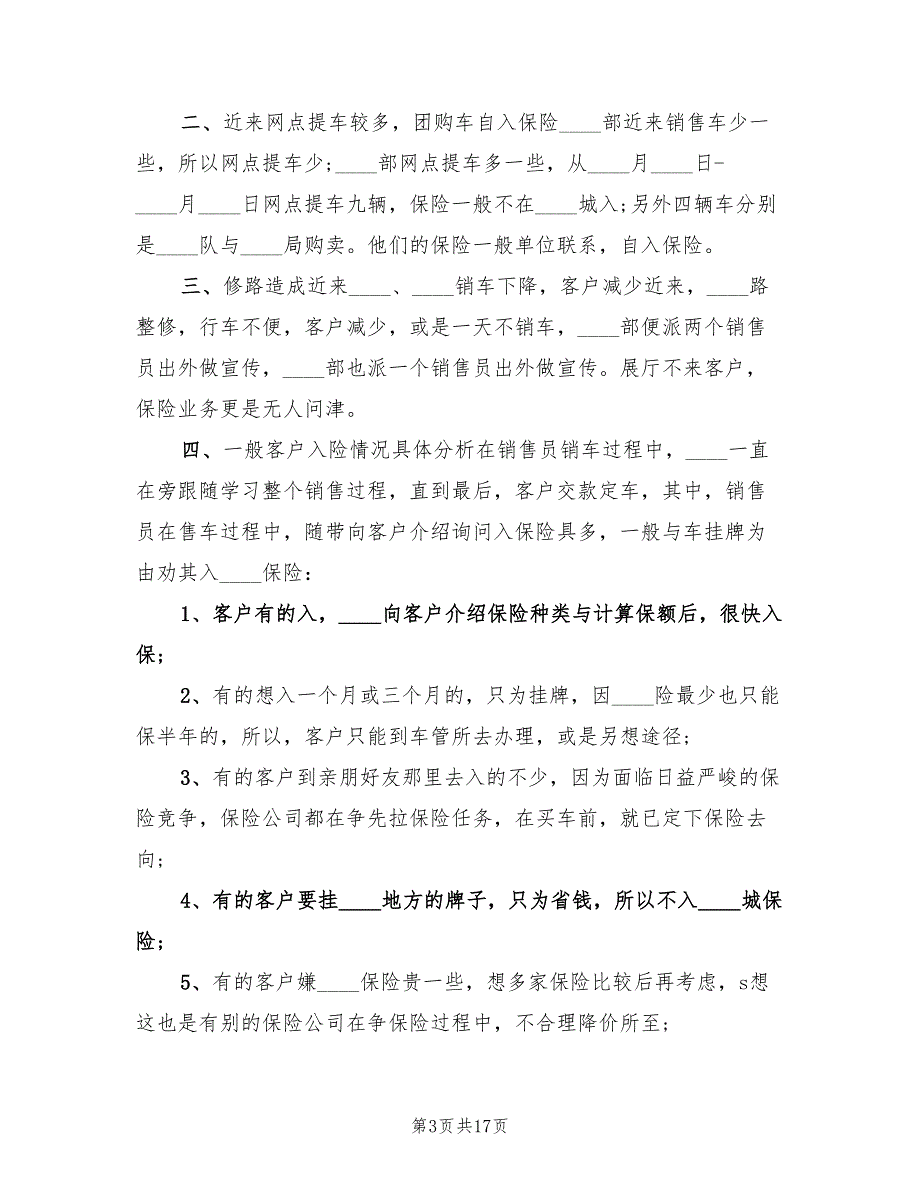 二、近来网点提车较多，团购车自入保险____部近来销售车少一
些，所以网点提车少;____部网点提车多一些，从____月____日-
____月____日网点提车九辆，保险一般不在____城入;另外四辆车分别
是____队与____局购卖。他们的保险一般单位联系，自入保险。
三、修路造成近来____、____销车下降，客户减少近来，____路
整修，行车不便，客户减少，或是一天不销车，____部便派两个销售
员出外做宣传，____部也派一个销售员出外做宣传。展厅不来客户，
保险业务更是无人问津。
四、一般客户入险情况具体分析在销售员销车过程中，____一直
在旁跟随学习整个销售过程，直到最后，客户交款定车，其中，销售
员在售车过程中，随带向客户介绍询问入保险具多，一般与车挂牌为
由劝其入____保险：
1、客户有的入，____向客户介绍保险种类与计算保额后，很快入
保;
2、有的想入一个月或三个月的，只为挂牌，因____险最少也只能
保半年的，所以，客户只能到车管所去办理，或是另想途径;
3、有的客户到亲朋好友那里去入的不少，因为面临日益严峻的保
险竞争，保险公司都在争先拉保险任务，在买车前，就已定下保险去
向;
4、有的客户要挂____地方的牌子，只为省钱，所以不入____城保
险;
5、有的客户嫌____保险贵一些，想多家保险比较后再考虑，s想
这也是有别的保险公司在争保险过程中，不合理降价所至;
第3页共17页